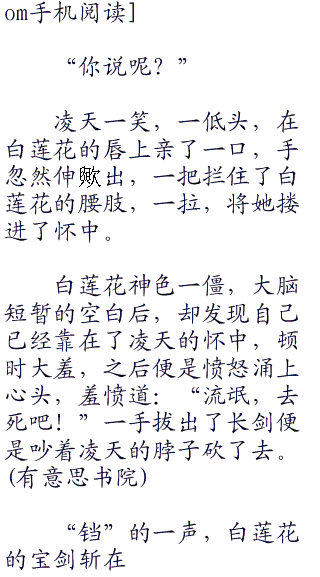 om手机阅读]
“你说呢？”
凌天一笑，一低头，在
白莲花的唇上亲了一口，手
忽然伸歟出，一把拦住了白
莲花的腰肢，一拉，将她搂
进了怀中。
白莲花神色一僵，大脑
短暂的空白后，却发现自己
已经靠在了凌天的怀中，顿
时大羞，之后便是愤怒涌上
心头，羞愤道：“流氓，去
死吧！”一手拔出了长剑便
是吵着凌天的脖子砍了去。
(有意思书院)
“铛”的一声，白莲花
的宝剑斩在